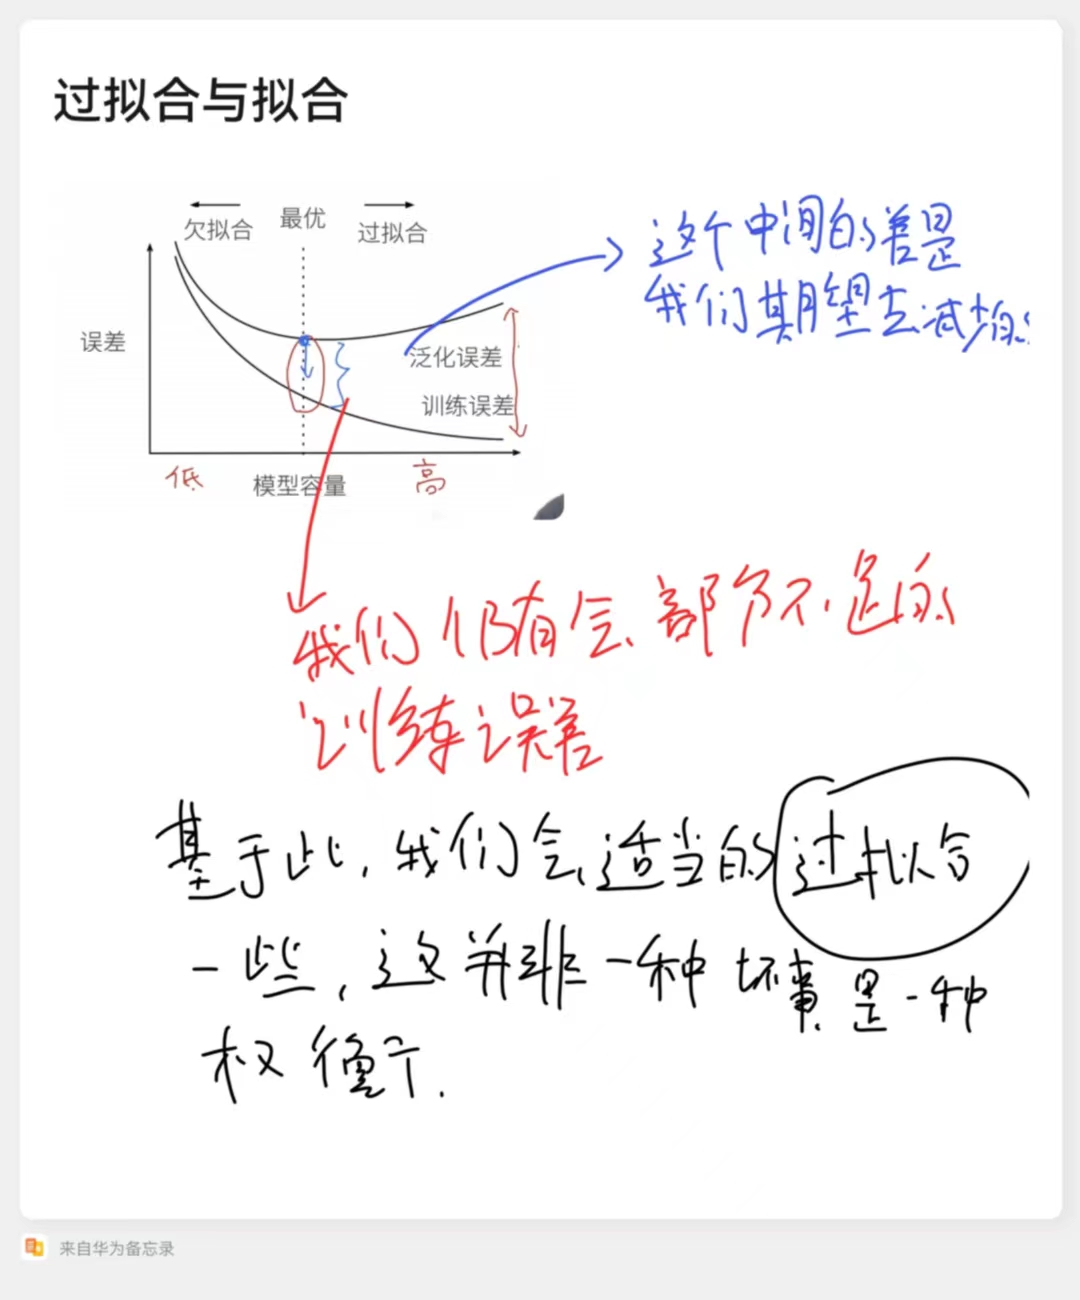 过拟合与拟合
欠拟合
最优
过拟合
误差
泛化误差
训练误差
低
模型容量
高
这个中间的差是
我们期望去减少的
我们仍有会部分不足的
训练误差
基于此,我们会适当的过拟合
一些,这并非一种坏事是一种
权衡.
来自华为备忘录